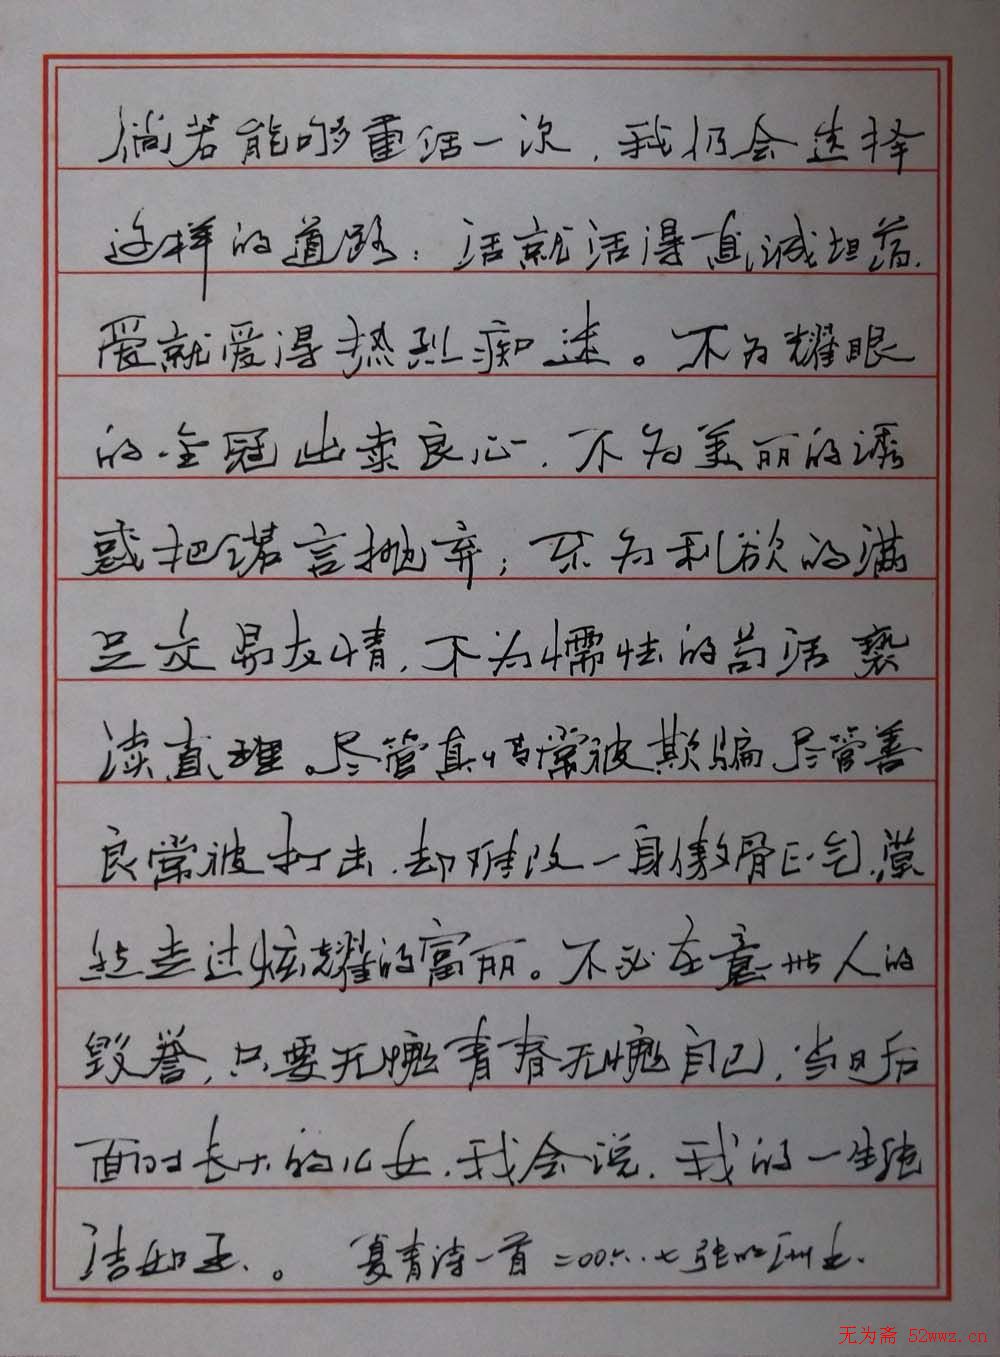 倘若能够重活一次，我仍会选择
这样的道路：活就活得真诚坦荡，
爱就爱得热烈痴迷。不为耀眼
的金冠出卖良心，不为美丽的诱
惑把诺言抛弃；不为利欲的满
足交易友情，不为懦怯的苟活亵
渎真理。尽管真情常被欺骗，尽管善
良常被打击，却难改一身傲骨正气，
走过炫耀的富丽。不必在意世人的
毁誉，只要无愧青春无愧自己，当日后
面对长大的儿女，我会说，我的一生纯
洁如玉。。 夏青诗一首 二〇〇六.七 张
无为斋 52wwz.cn